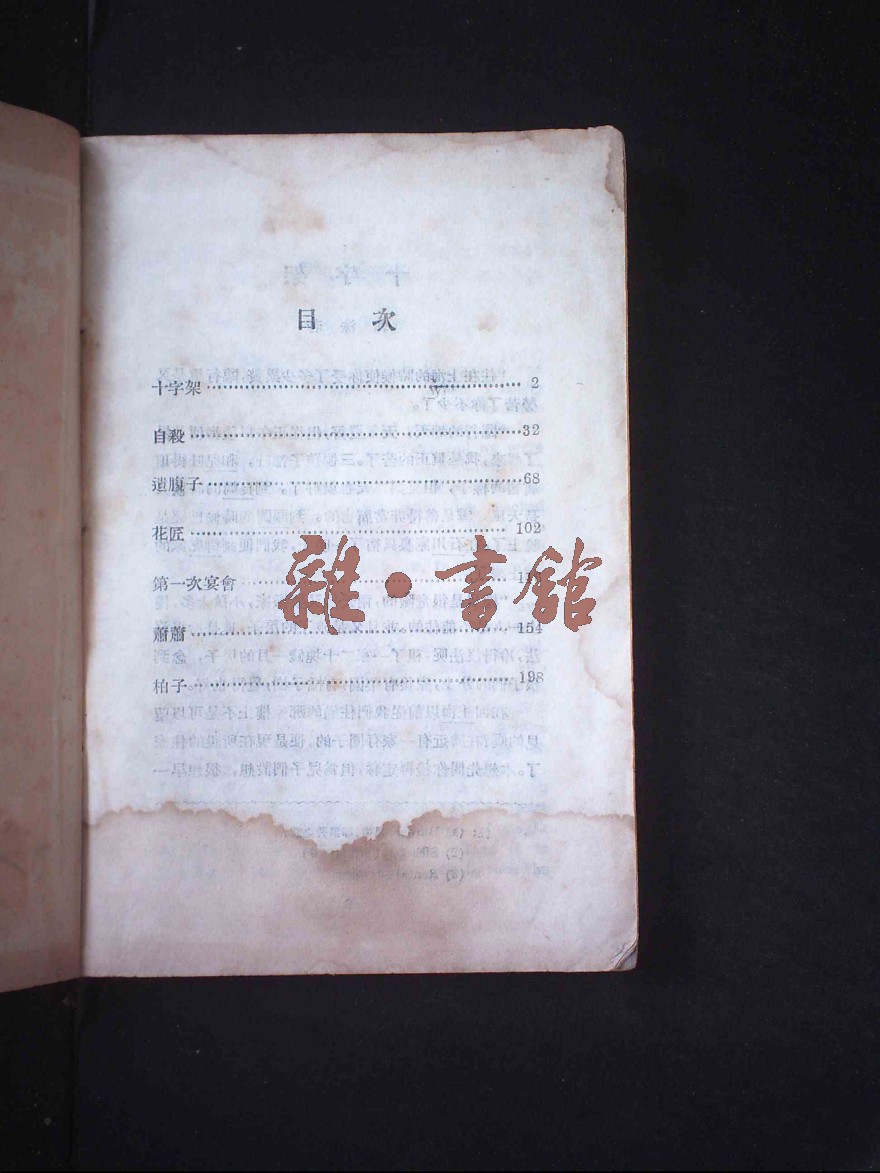 目 次
十字架 2
自殺 32
遺腹子 68
花匠 102
第一次宴會
蕭蕭 154
柏子 198
雜·書館